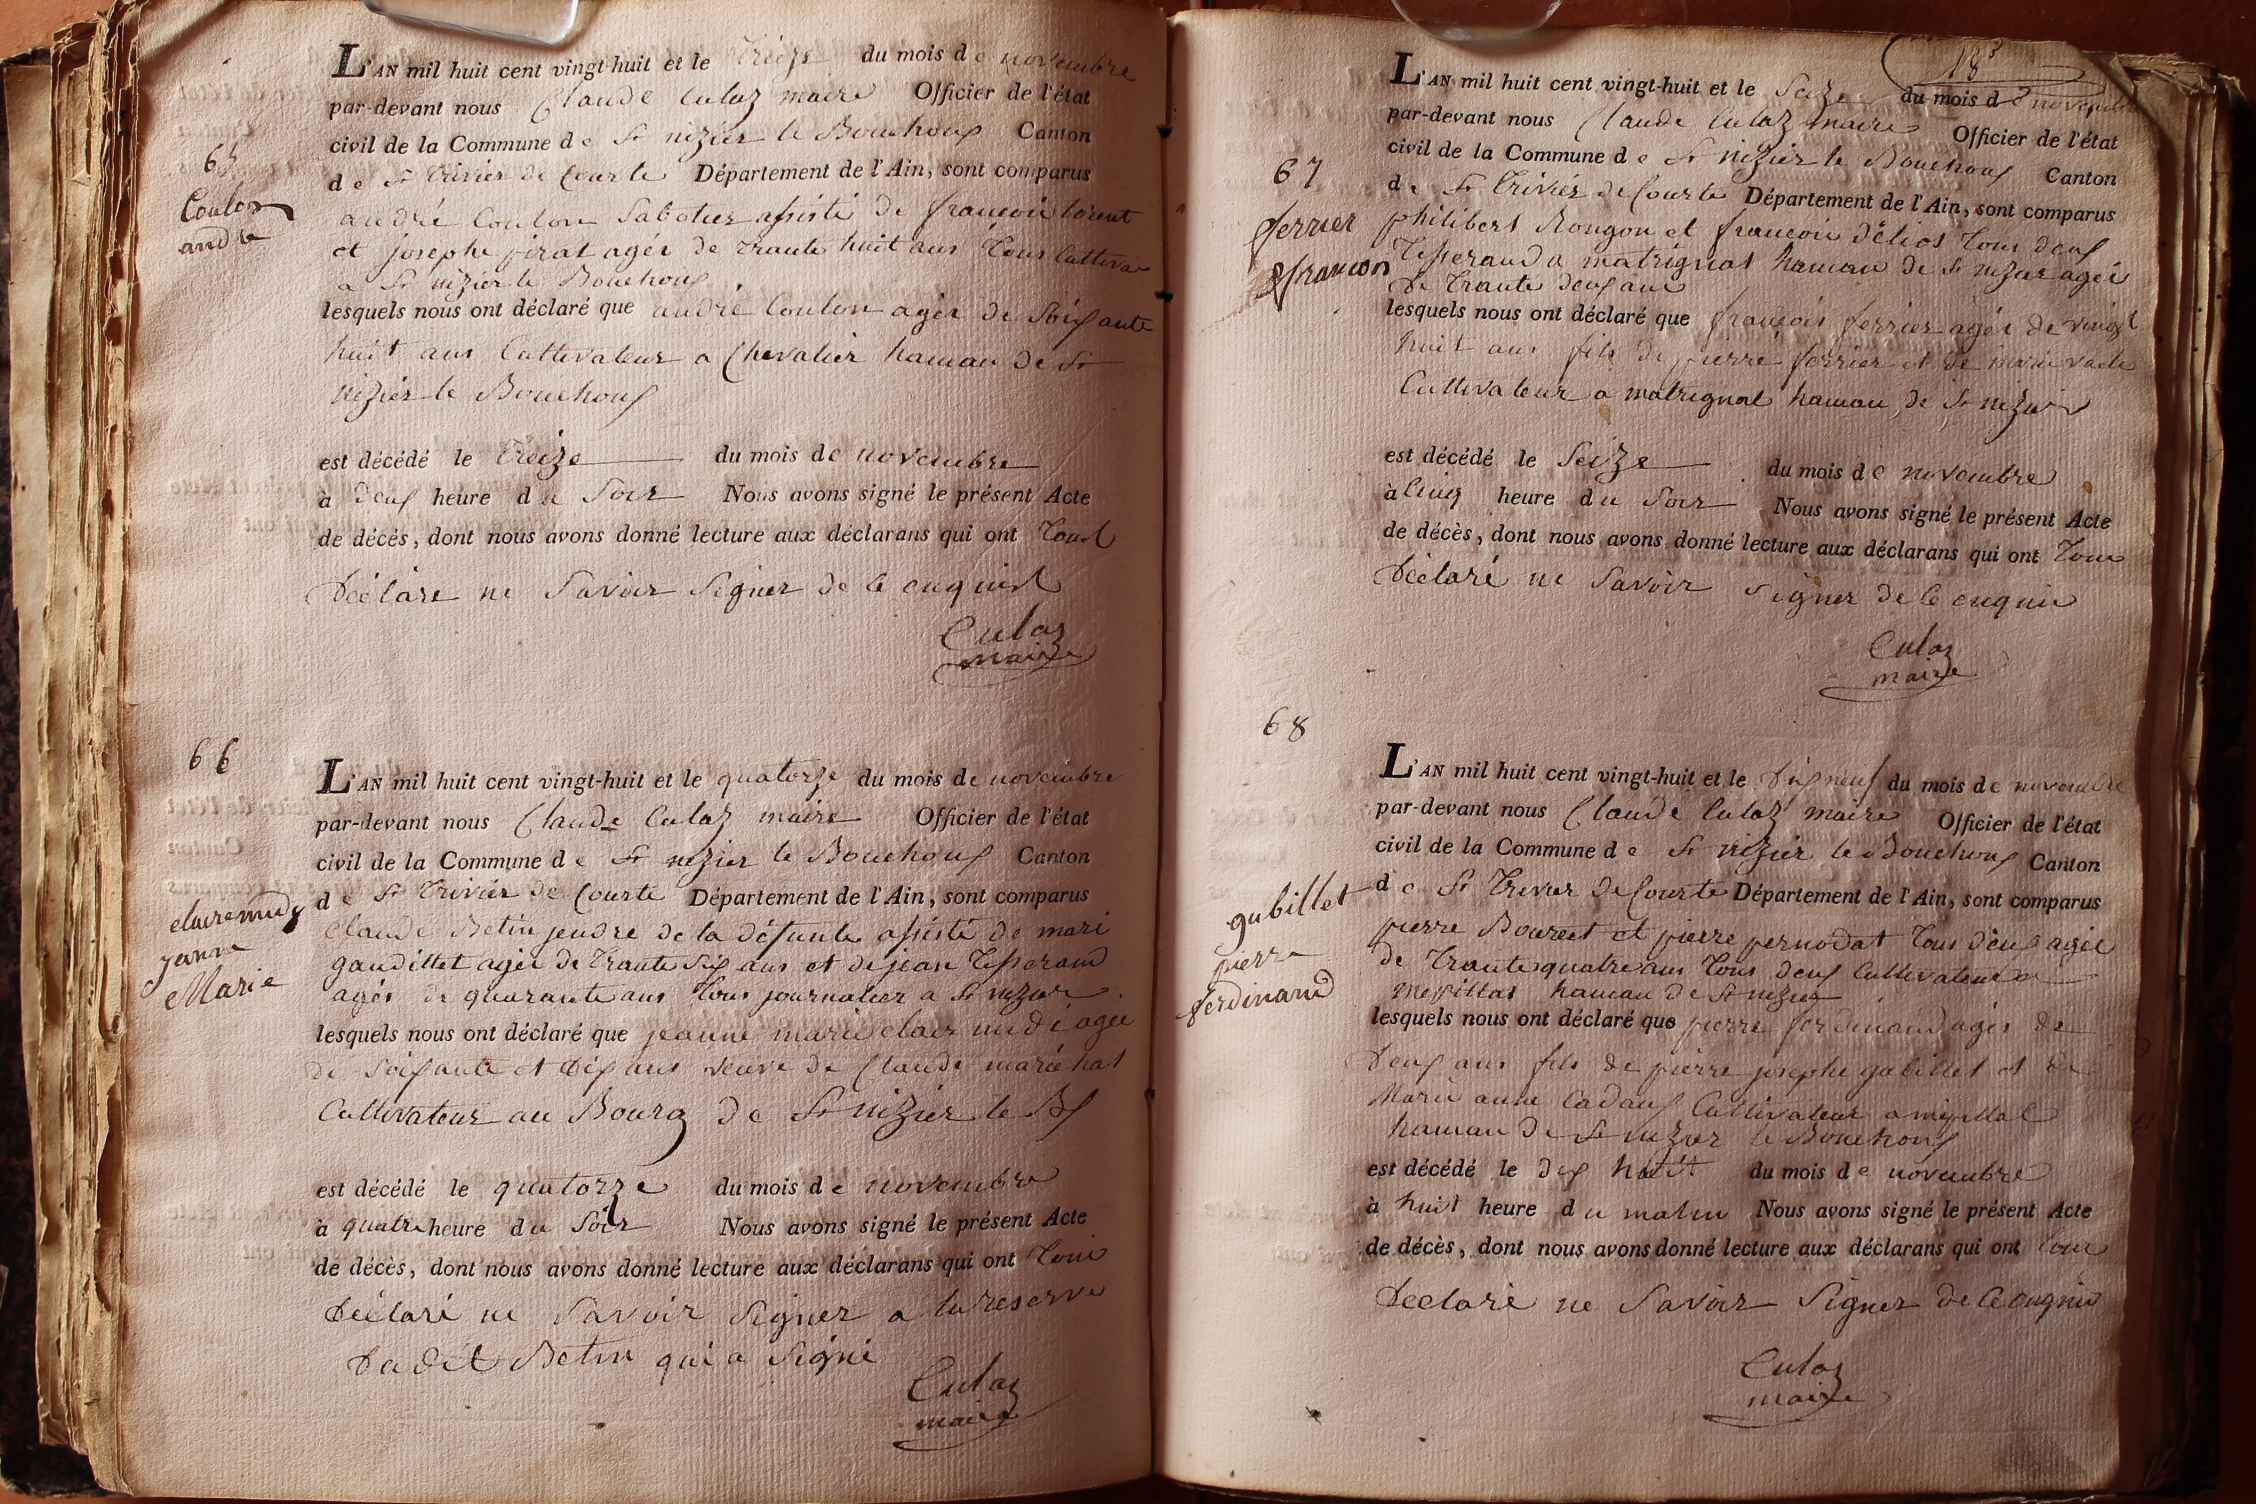 65
Coulon
andré
L'AN mil huit cent vingt-huit et le treize du mois de novembre
par-devant nous Claude Culaz maire Officier de l'état
civil de la Commune de St nizier le Bouchoux Canton
de St trivier de Courte Département de l'Ain, sont comparus
andré Coulon Sabotier assisté de françois
et josephe pirat agér de trante huit ans tous Cultiva
a St nizier le Bouchoux
lesquels nous ont déclaré que andré Coulon agér de Soixante
huit ans Cultivateur a Chevalier hamau de St
nizier le Bouchoux
est décédé le treize du mois de novembre
à deux heure du Soir Nous avons signé le présent Acte
de décès, dont nous avons donné lecture aux déclarans qui ont tous
Déclaré ne Savoir Signer de ce enquis
Culaz
maire
66
clairemidy
jeanne
Marie
L'AN mil huit cent vingt-huit et le quatorze du mois de novembre
par-devant nous Claude Culaz maire Officier de l'état
civil de la Commune de St nizier le Bouchoux Canton
de St trivier de Courte Département de l'Ain, sont comparus
Claude Betin jendre de la défunte assisté de mari
gaudillet agér de trante six ans et de jean tisserand
agér de quarante ans tous journalier a St nizier
lesquels nous ont déclaré que jeanne marie clair midi agée
de Soixante et dix ans veuve de Claude maréchal
Cultivateur au Bourg de St nizier le Bx
est décédé le quatorze du mois de novembre
à quatre heure du Soir Nous avons signé le présent Acte
de décès, dont nous avons donné lecture aux déclarans qui ont tous
Déclaré ne Savoir Signer a la reserve
Du dit Betin qui a Signé
Culaz
maire
183
67
ferrier
francois
L'AN mil huit cent vingt-huit et le Seize du mois de novembre
par-devant nous Claude Culaz maire Officier de l'état
civil de la Commune de St nizier le Bouchoux Canton
de St trivier de Courte Département de l'Ain, sont comparus
philibert Rongon et francois tous deux
tisserand a matrignat hamau de St nizier agér
de trante deux ans
lesquels nous ont déclaré que françois ferrier agér de vingt
huit ans fils de pierre ferrier et de marie
Cultivateur a matrignat hamau de St nizier
est décédé le Seize du mois de novembre
à Cinq heure du Soir Nous avons signé le présent Acte
de décès, dont nous avons donné lecture aux déclarans qui ont tous
Déclaré ne Savoir Signer de ce enquis
Culaz
maire
68
gubillet
pierre
ferdinand
L'AN mil huit cent vingt-huit et le Dix neuf du mois de novembre
par-devant nous Claude Culaz maire Officier de l'état
civil de la Commune de St nizier le Bouchoux Canton
de St trivier de Courte Département de l'Ain, sont comparus
pierre Bourcet et pierre pernodat tous deux agér
de trante quatre ans tous deux Cultivateur a
hamau de St nizier
lesquels nous ont déclaré que pierre ferdinand agér de
Deux ans fils de pierre josephe gubillet et de
Marie anne Cadaux Cultivateur a
hamau de St nizier le Bouchoux
est décédé le dix huit du mois de novembre
à huit heure du matin Nous avons signé le présent Acte
de décès, dont nous avons donné lecture aux déclarans qui ont tous
Declaré ne Savoir Signer de ce enquis
Culaz
maire